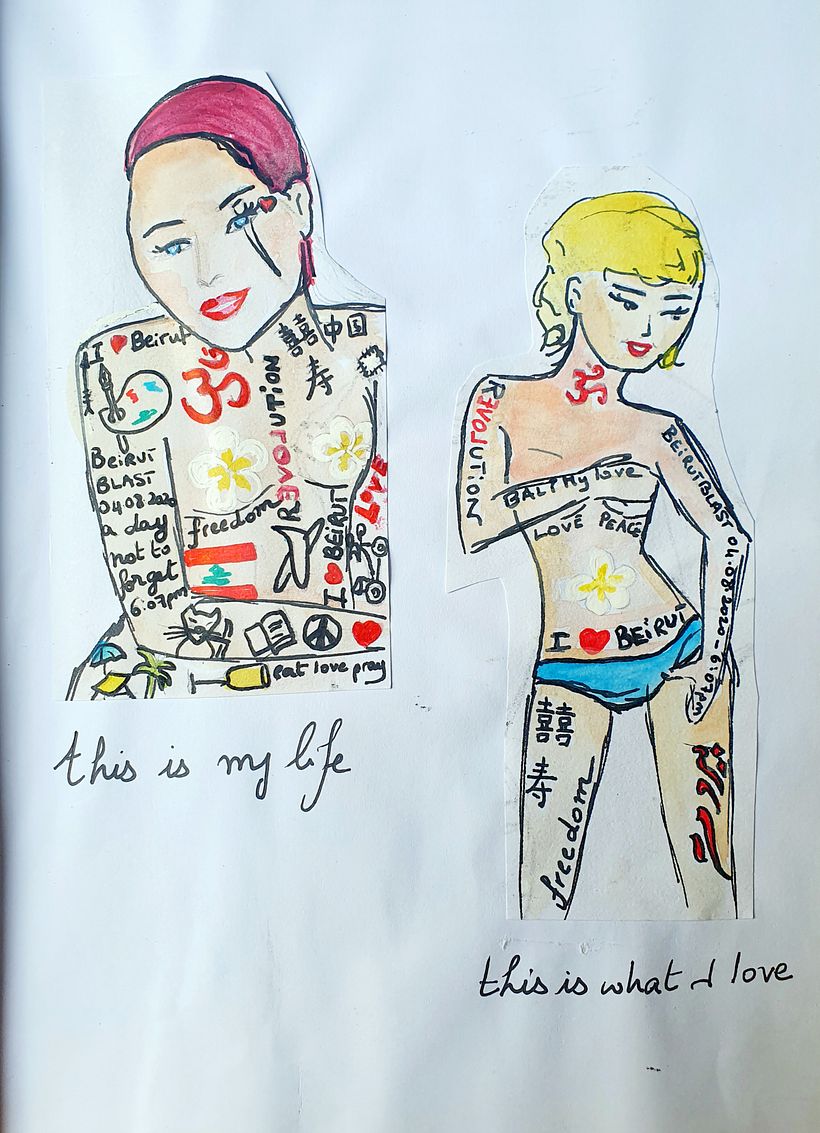 I ❤ Beirut
ॐ
REVOLUTION
囍
囍
中国
寿
BEiRUT
BLAST
04 08 2020
a day
not to
forget
6:07pm
freedom
I ❤ BEiRUT
LOVE
eat love pray
this is my life
ॐ
REVOLUTION
BEiRUTBLAST
04.08.2020-6:07pm
BALI My love
LOVE PEACE
I ❤ BEiRUT
囍
寿
freedom
this is what I love